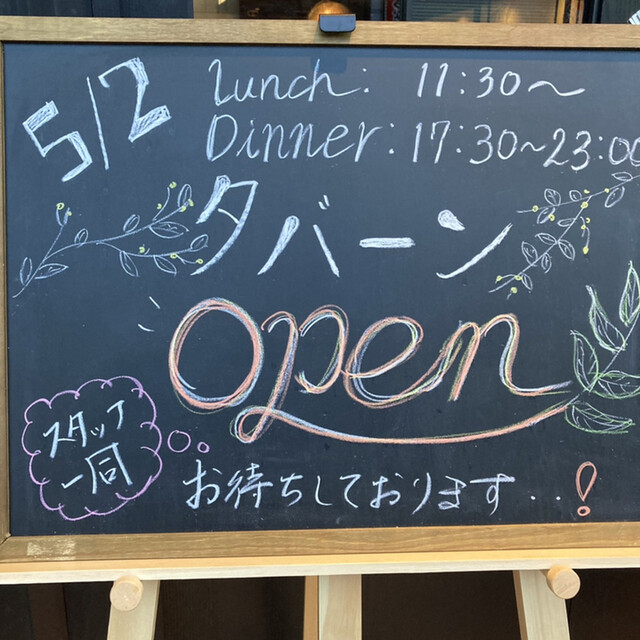 5/2
Lunch: 11:30〜
Dinner: 17:30〜23:00
タバーン
Open
スタッフ
一同
お待ちしております‥!